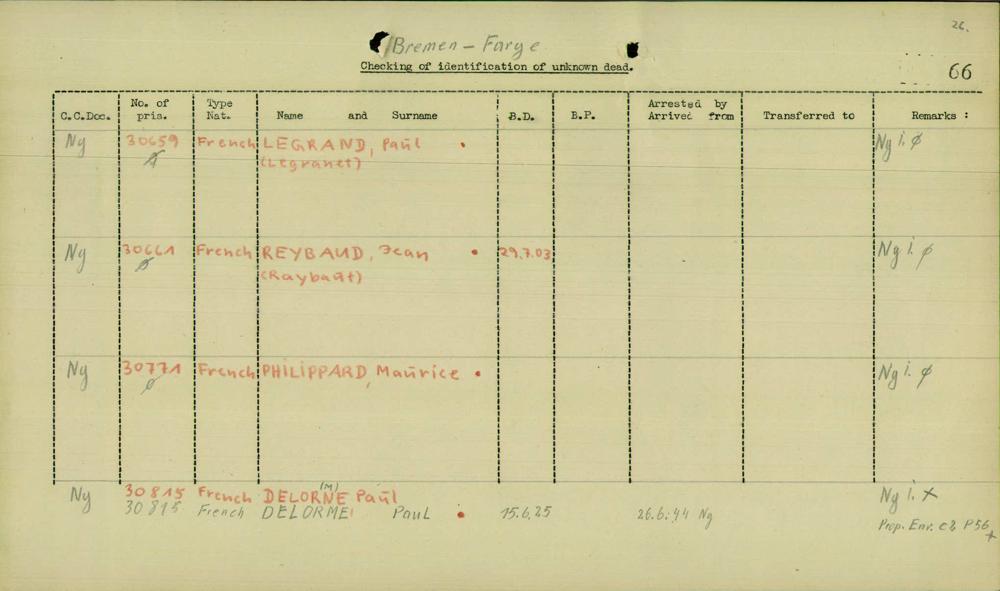 26.
Bremen - Farge
Checking of identification of unknown dead.
66
C.C.Doc. No. of pris. Type Nat. Name and Surname B.D. B.P. Arrested by Arrived from Transferred to Remarks :
Ng 30659 French LEGRAND, Paul Ng i. ø
(Legranet)
Ng 30661 French REYBAUD, Jean 29.7.03 Ng i. ø
(Raybaut)
Ng 30771 French PHILIPPARD, Maurice Ng i. ø
ø
Ng 30815 French DELORNE (M) Paul Ng i. +
30815 French DELORME Paul 15.6.25 26.6.44 Ng
Prop. Env. P56 +